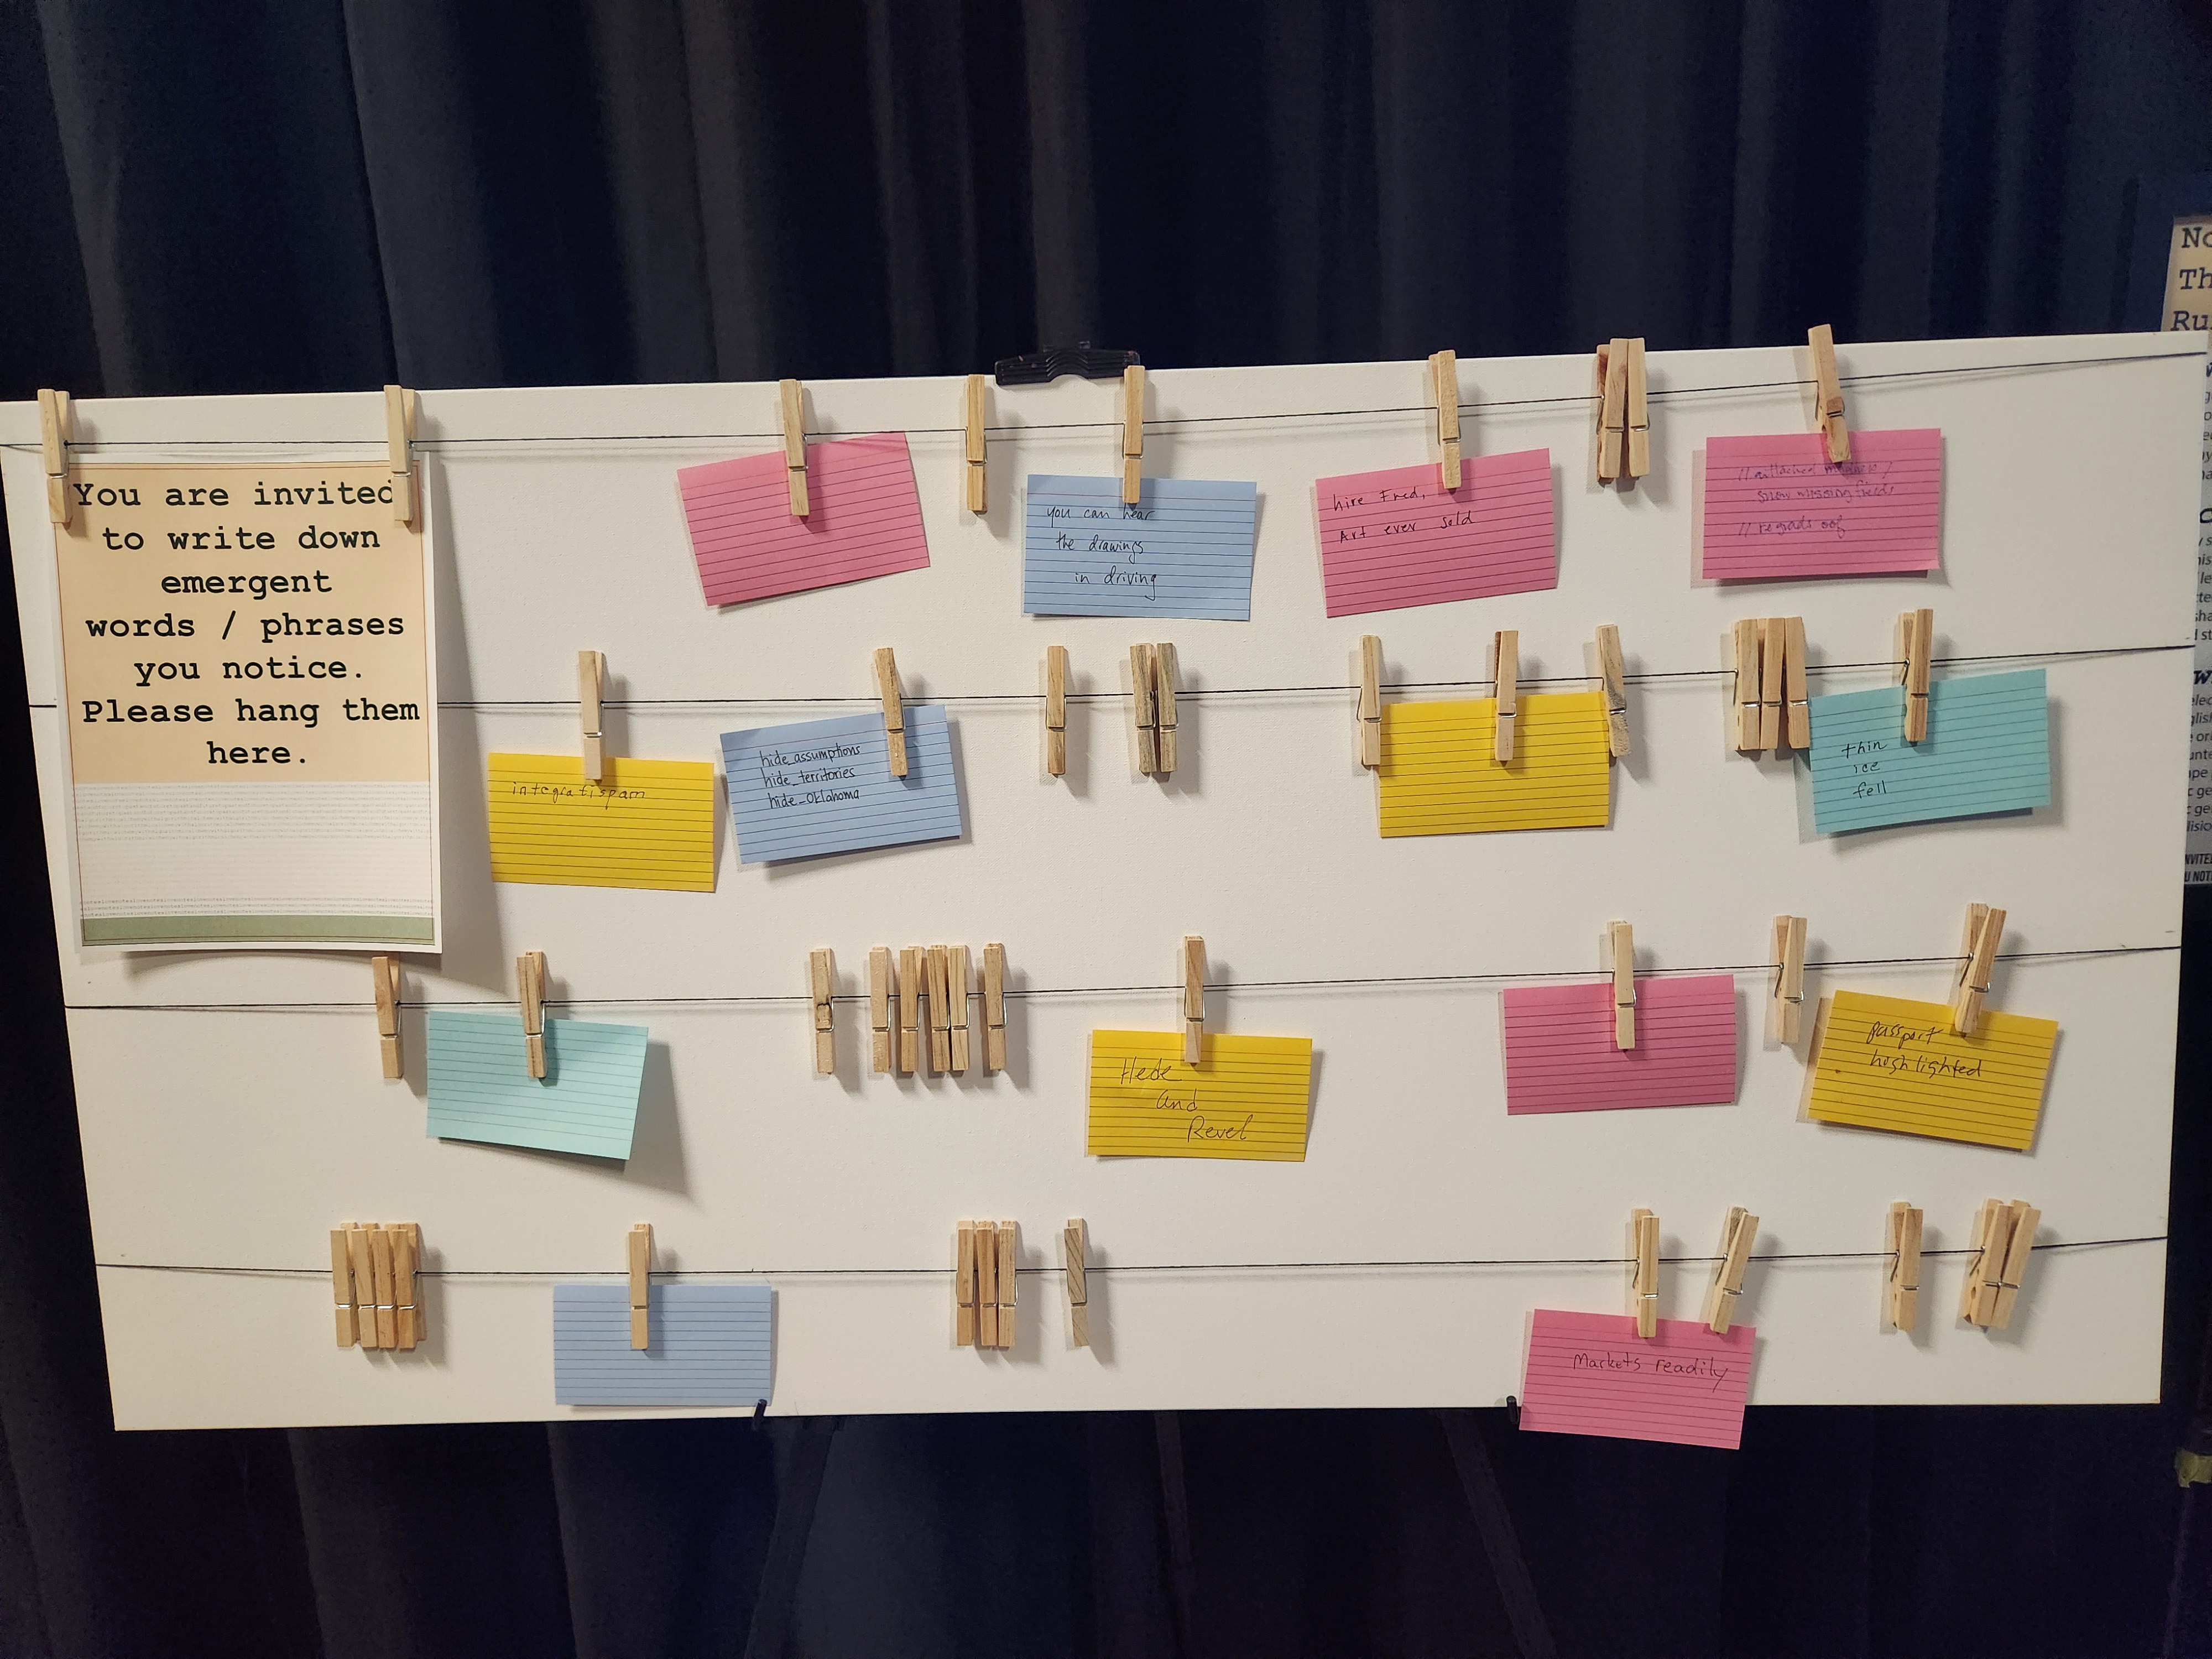 You are invited
to write down
emergent
words / phrases
you notice.
Please hang them
here.
you can hear
the drawings
in driving
hire Fred,
Art ever sold
// attached
snow missing fields
// regads oof
integratispam
hide_assumptions
hide_territories
hide_Oklahoma
thin
ice
fell
Hede
and
Revel
passport
hoshlighted
Markets readily
No
Th
Ru